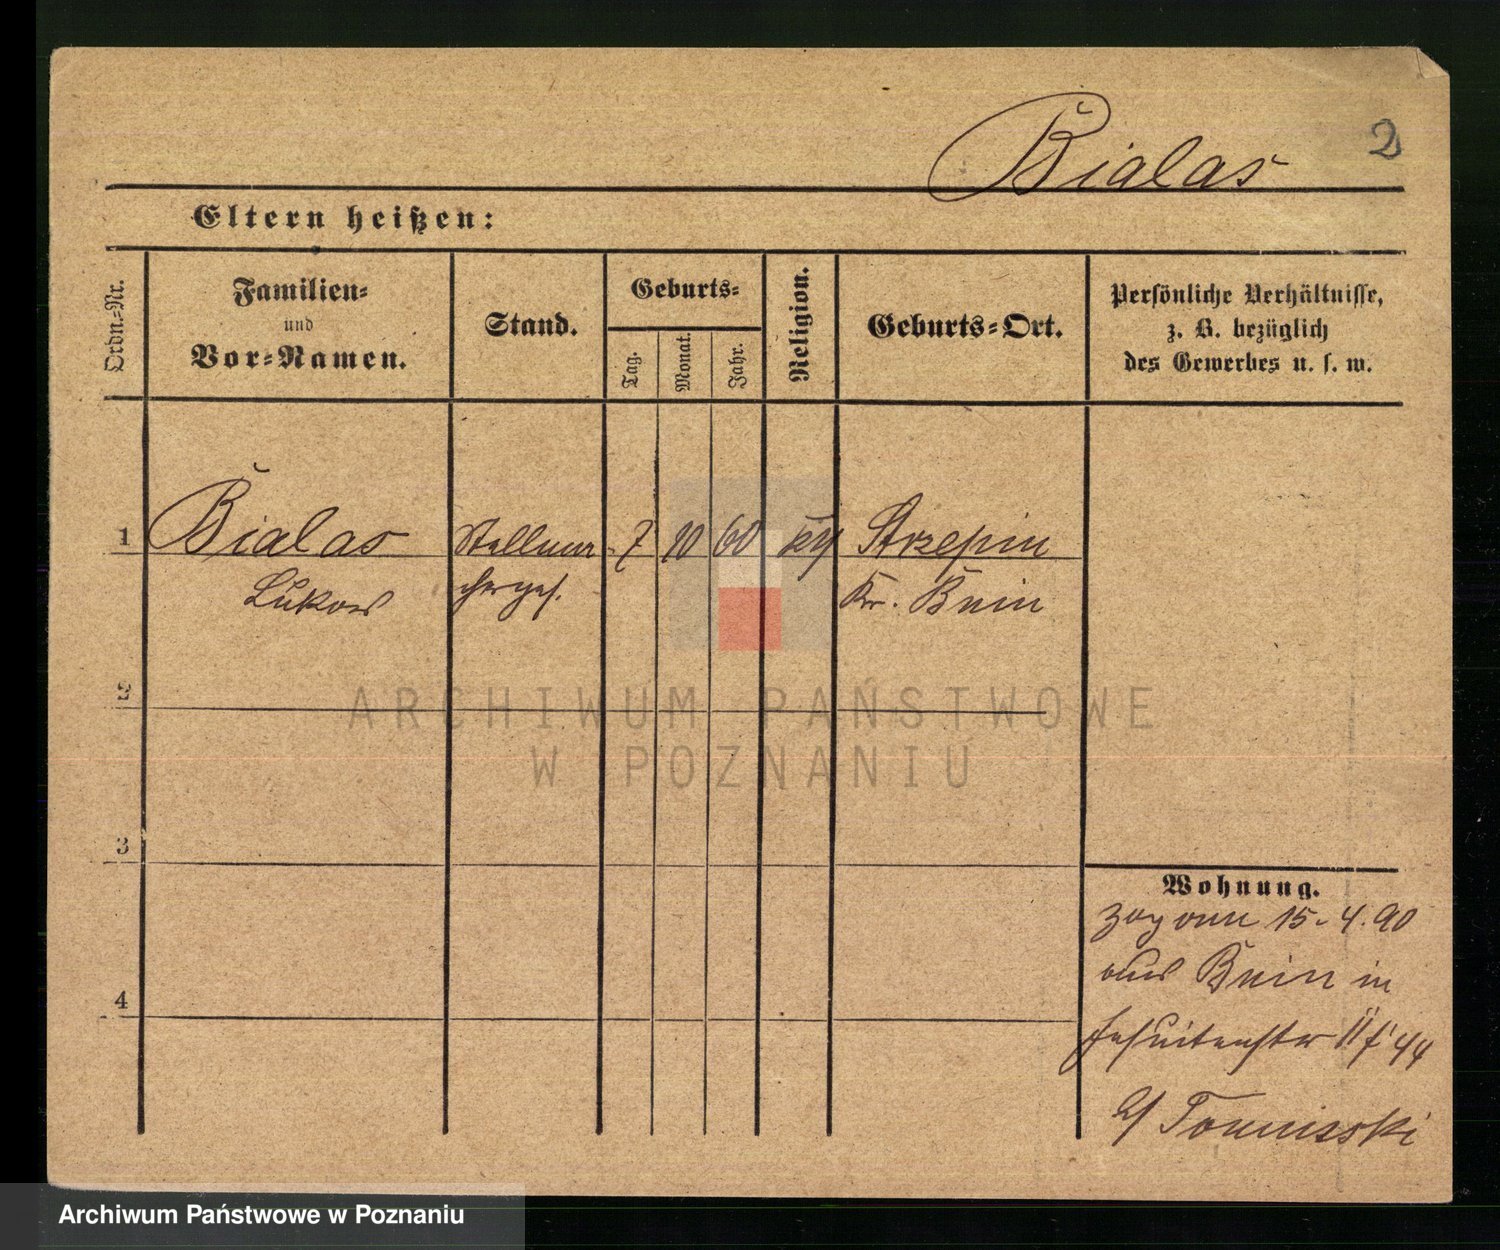 Bialas
2
Eltern heißen:
Ordn.-Nr.
Familien-
und
Vor-Namen.
Stand.
Geburts-
Tag.
Monat.
Jahr.
Religion.
Geburts-Ort.
Persönliche Verhältnisse,
z. B. bezüglich
des Gewerbes u. s. w.
1 Bialas Stellma- 7 10 60 kth Strzepin
Lukas chergес. Kr. Bnin
2
3
4
Wohnung.
zog am 15-4.90
aus Bnin in
Jesuitenstr 11 f 44
ARCHIWUM PAŃSTWOWE
W POZNANIU
Archiwum Państwowe w Poznaniu